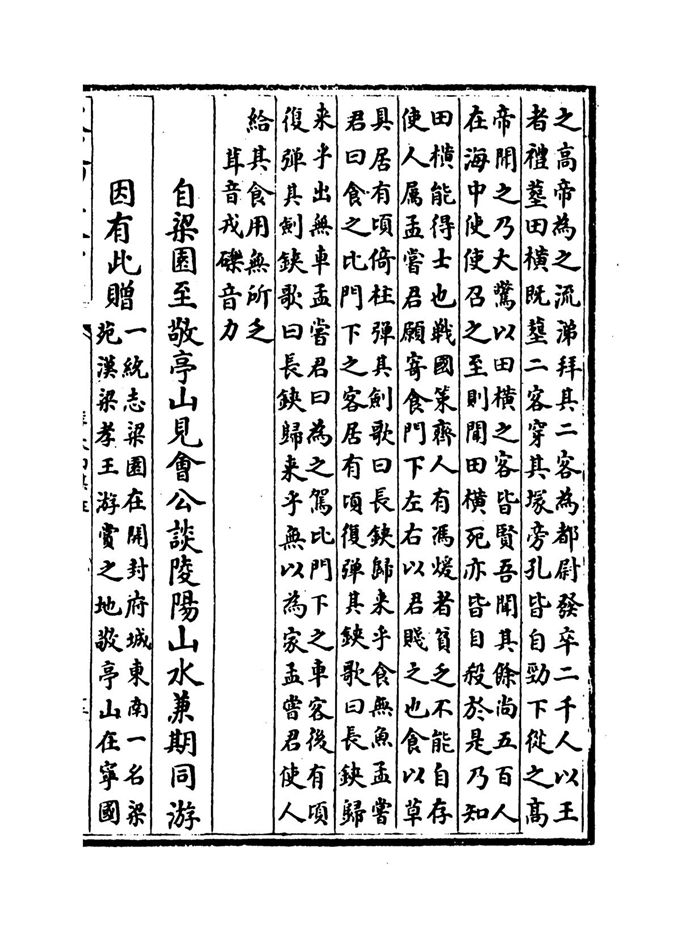 之高帝為之流涕拜其二客為都尉發卒二千人以王
者禮塟田橫既塟二客穿其塚旁孔皆自剄下從之高
帝聞之乃大驚以田橫之客皆賢吾聞其餘尚五百人
在海中使使召之至則聞田橫死亦皆自殺於是乃知
田橫能得士也戰國策齊人有馮煖者貧乏不能自存
使人属孟嘗君願寄食門下左右以君賤之也食以草
具居有頃倚柱彈其劍歌曰長鋏歸来乎食無魚孟嘗
君曰食之比門下之客居有頃復彈其鋏歌曰長鋏歸
来乎出無車孟嘗君曰為之駕比門下之車客後有頃
復彈其劍鋏歌曰長鋏歸来乎無以為家孟嘗君使人
給其食用無所乏
茸音戎礫音力
自梁園至敬亭山見會公談陵陽山水兼期同游
因有此贈
一統志梁園在開封府城東南一名梁
苑漢梁孝王游賞之地敬亭山在寧國